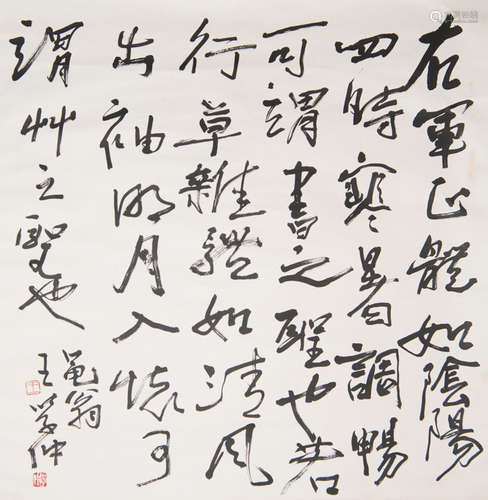 右軍正體如陰陽
四時寒暑調暢
可謂書之聖也若
行草雜體如清風
出袖明月入懷可
謂艸之聖也
黾翁
王學仲